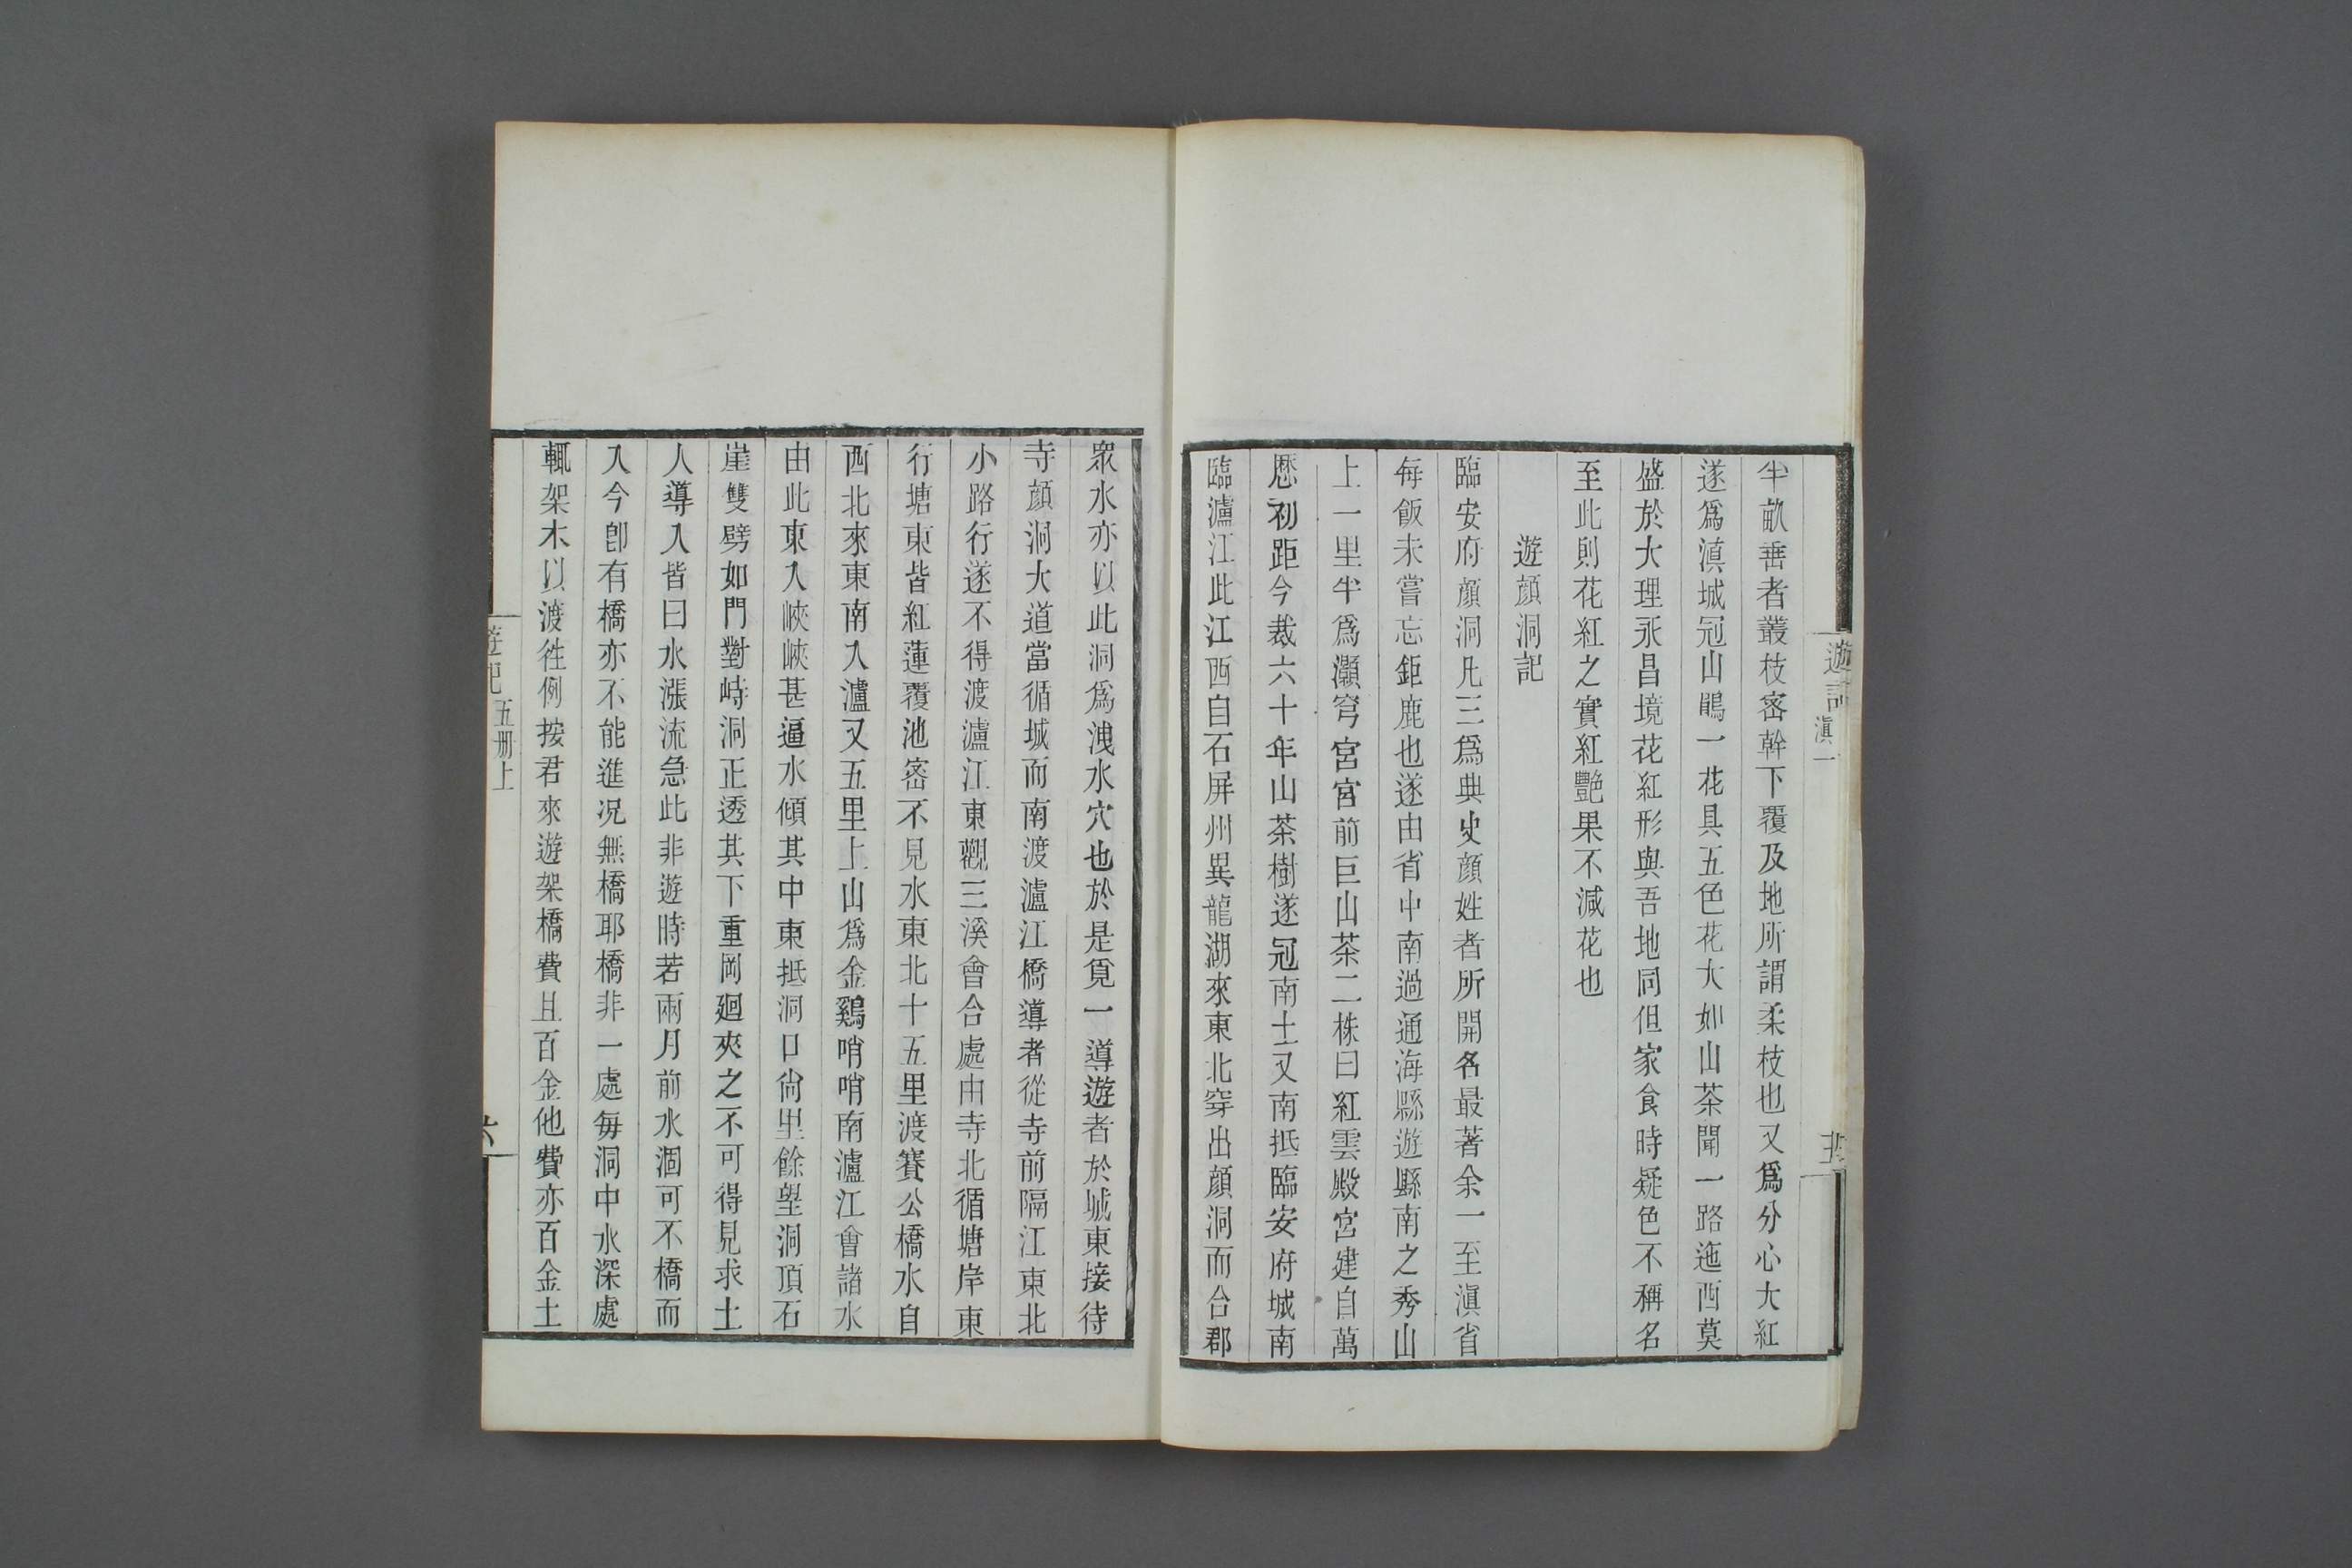 遊記
滇一
半畝垂者叢枝密幹下覆及地所謂柔枝也又爲分心大紅
遂爲滇城冠山鵑一花具五色花大如山茶聞一路迤西莫
盛於大理永昌境花紅形與吾地同但家食時疑色不稱名
至此則花紅之實紅艷果不減花也
遊顏洞記
臨安府顏洞凡三爲典史顏姓者所開名最著余一至滇省
每飯未嘗忘鉅鹿也遂由省中南過通海縣遊縣南之秀山
上一里半爲灝穹宮宮前巨山茶二株曰紅雲殿宮建自萬
歷初距今裁六十年山茶樹遂冠南土又南抵臨安府城南
臨瀘江此江西自石屏州異龍湖來東北穿出顏洞而合郡
眾水亦以此洞爲洩水穴也於是覓一導遊者於城東接待
寺顏洞大道當循城而南渡瀘江橋導者從寺前隔江東北
小路行遂不得渡瀘江東觀三溪會合處由寺北循塘岸東
行塘東皆紅蓮覆池密不見水東北十五里渡賽公橋水自
西北來東南入瀘又五里上山爲金鷄哨哨南瀘江會諸水
由此東入峽峽甚逼水傾其中東抵洞口尙里餘望洞頂石
崖雙劈如門對峙洞正透其下重岡廻夾之不可得見求土
人導入皆曰水漲流急此非遊時若兩月前水涸可不橋而
入今卽有橋亦不能進况無橋耶橋非一處每洞中水深處
輒架木以渡徃例按君來遊架橋費且百金他費亦百金土
五册上